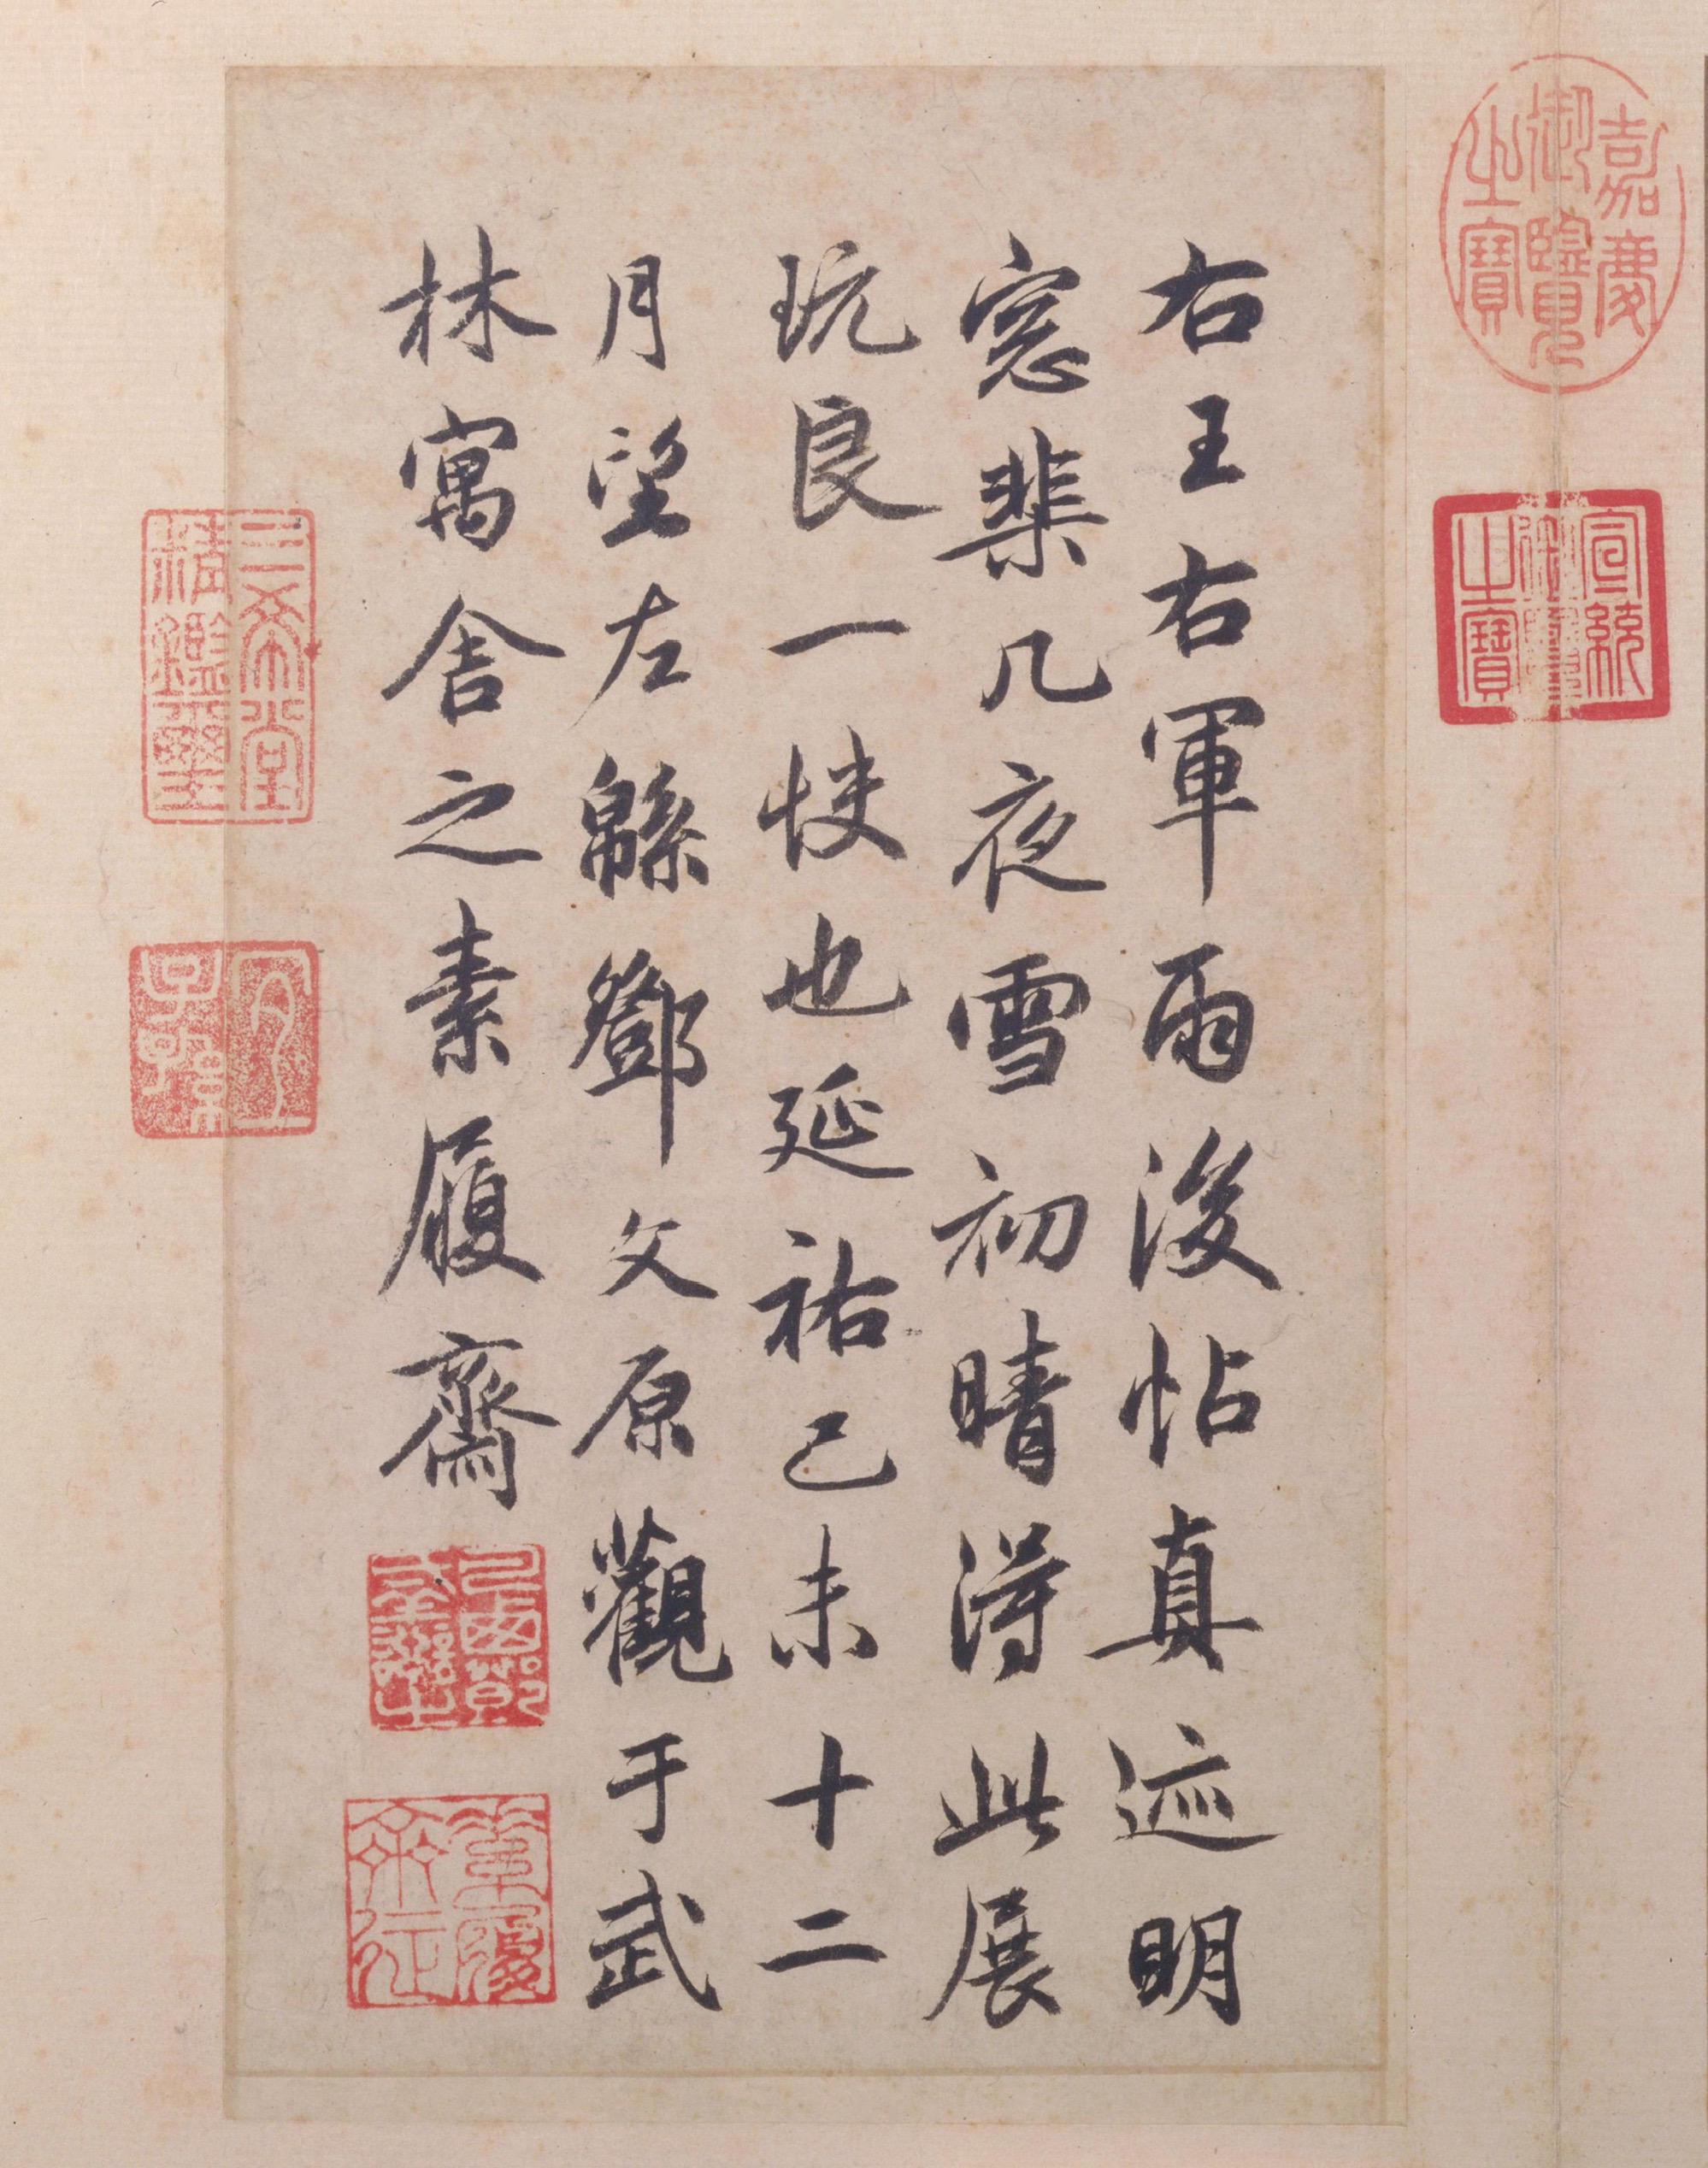 右王右軍雨後帖真迹明
窓棐几夜雪初晴得此展
玩良一快也延祐己未十二
月望左緜鄧文原觀于武
林寓舍之素履齋
嘉慶御覽之寶
宣統御覽之寶
三希堂精鑑璽
宜子孫
素履齋